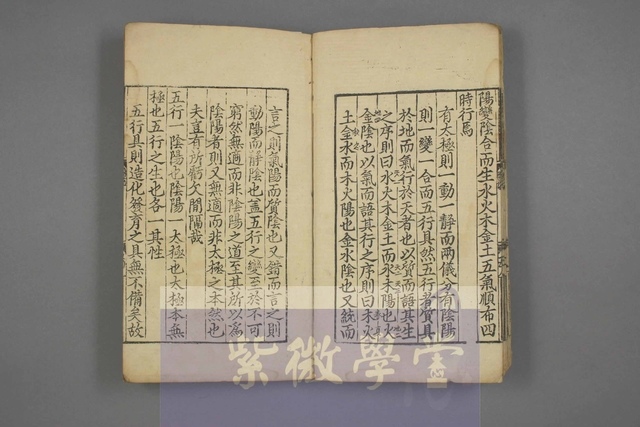 陽變陰合而生水火木金土五氣順布四
時行焉
有太極則一動一靜而兩儀分有陰陽
則一變一合而五行具然五行者質具
於地而氣行於天者也以質而語其生
之序則曰水火木金土而水木陽也火
金陰也以氣而語其行之序則曰木火
土金水而木火陽也金水陰也又統而
言之則氣陽而質陰也又錯而言之則
動陽而靜陰也蓋五行之變至於不可
窮然無適而非陰陽之道至其所以為
陰陽者則又無適而非太極之本然也
夫豈有所虧欠間隔哉
五行一陰陽也陰陽一太極也太極本無
極也五行之生也各一其性
五行具則造化發育之具無不備矣故
紫微學堂